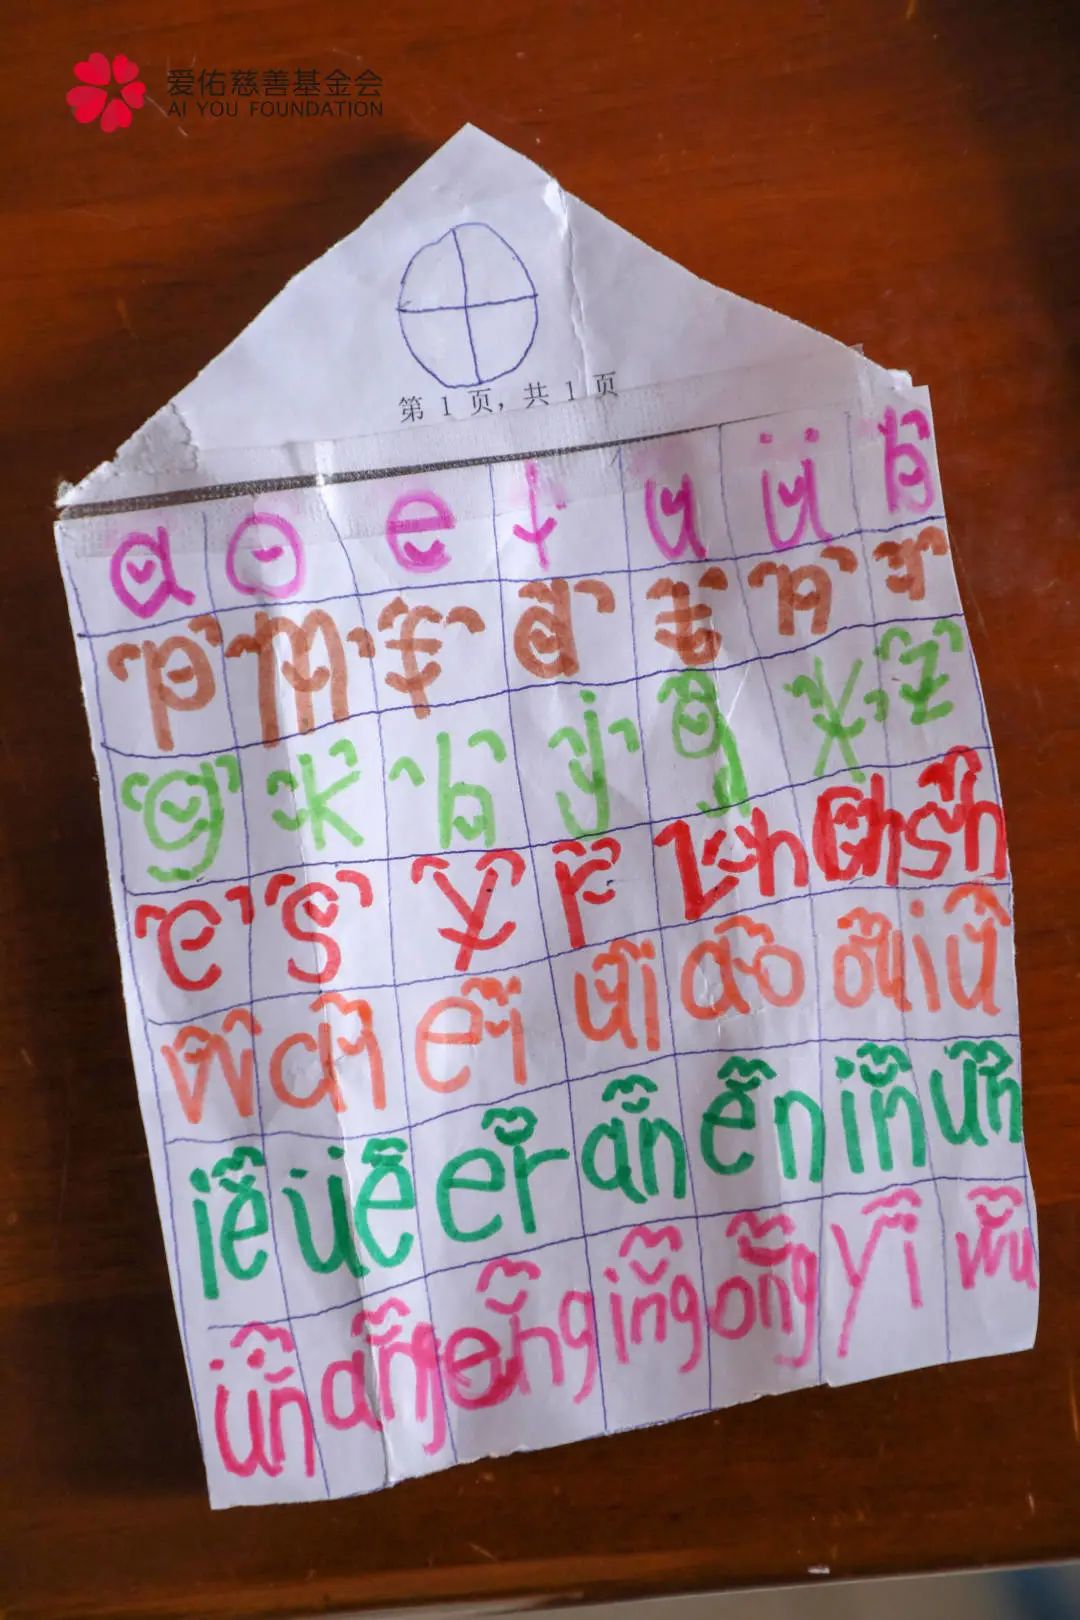 爱佑慈善基金会
AI YOU FOUNDATION
第 1 页, 共 1 页
a o e i u ü b
p m f d t n l
g k h j q x z
c s y r zh ch sh
w ai ei ui ao ou iu
ie üe er an en in un
ün ang eng ing ong yi wu